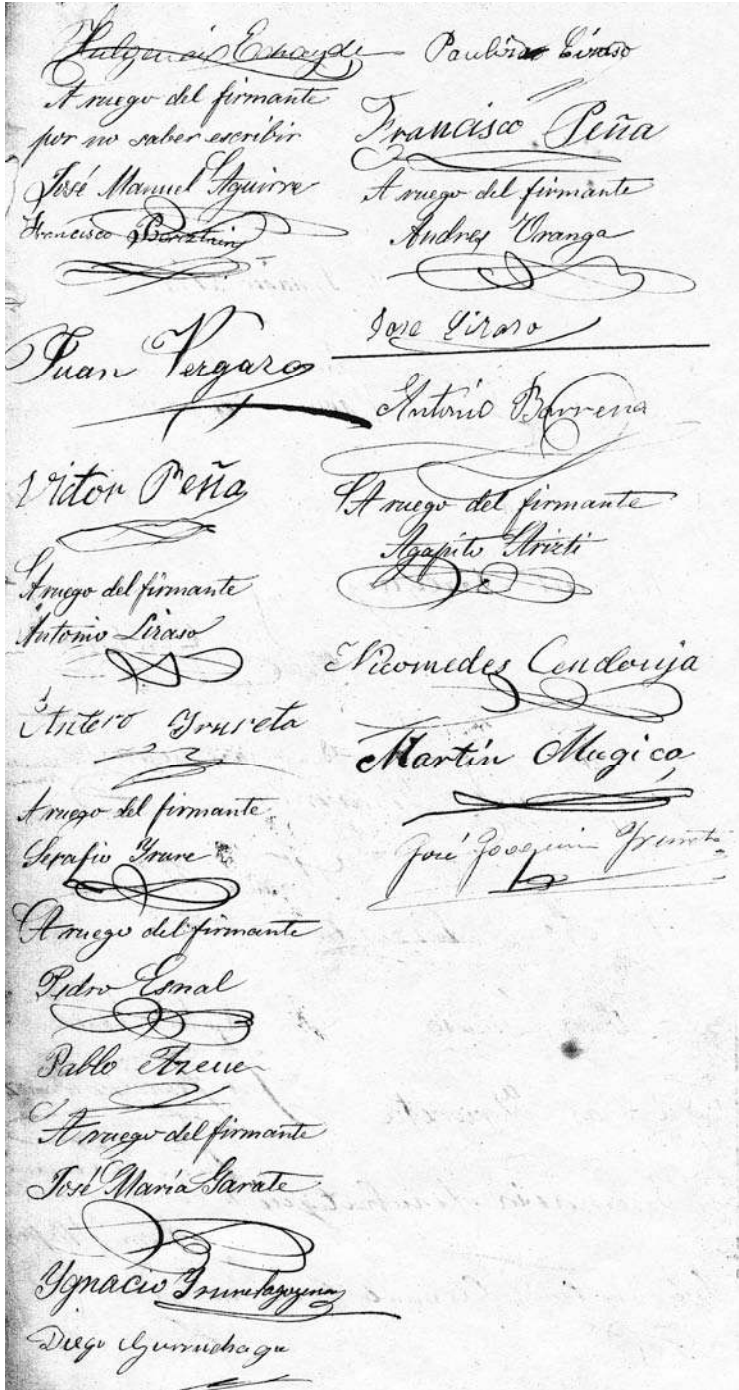 Fulgencio Echayde
A ruego del firmante
por no saber escribir
José Manuel Aguirre
Francisco
Juan Vergara
Victor Peña
A ruego del firmante
Antonio Liraso
Antero Yrureta
A ruego del firmante
Serafio Yrure
A ruego del firmante
Pedro Esnal
Pablo Azcue
A ruego del firmante
José María Garate
Ygnacio
Diego Gurruchaga
Paulino Liraso
Francisco Peña
A ruego del firmante
Andres Uranga
Jose Liraso
Antonio Barrena
A ruego del firmante
Agapito Arizti
Nicomedes Cendoya
Martín Mugica
José Joaquin Yrureta